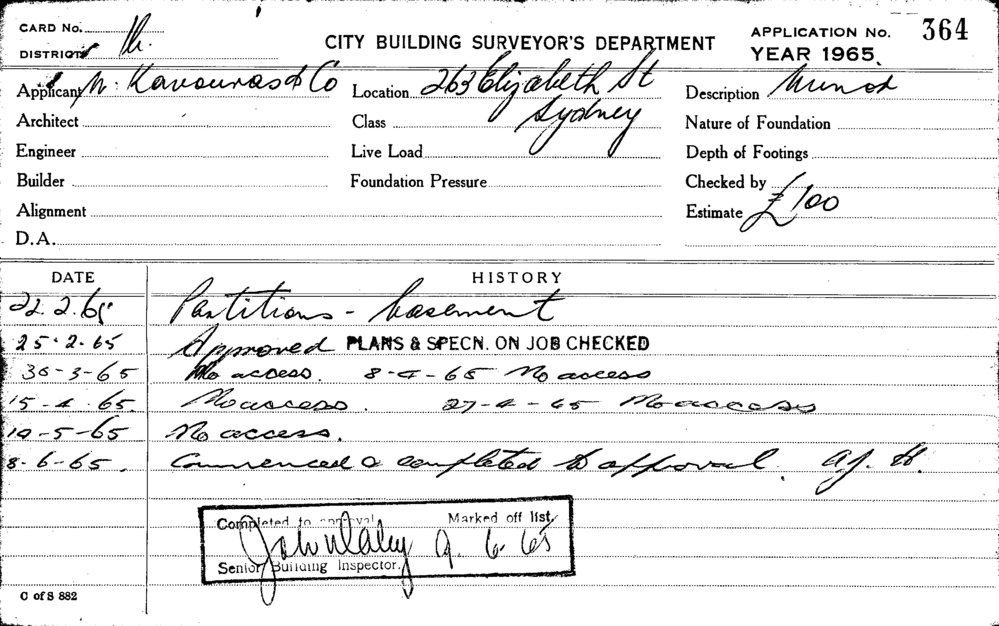 CARD No.
DISTRICT
CITY BUILDING SURVEYOR'S DEPARTMENT
APPLICATION No. 364
YEAR 1965.
Applicant N. Kavouras & Co
Location 263 Elizabeth St
Sydney
Description Minor
Architect
Class
Nature of Foundation
Engineer
Live Load
Depth of Footings
Builder
Foundation Pressure
Checked by
Alignment
Estimate £100
D.A.
DATE HISTORY
22.2.65 Partitions - basement
25.2.65 Approved PLANS & SPECN. ON JOB CHECKED
30-3-65 No access. 8-4-65 No access
15-4-65. No access. 27-4-65 No access
19-5-65 No access.
8-6-65. Commenced & completed to approval.
Completed to approval Marked off list.
9.6.65
Senior Building Inspector.
C of S 882